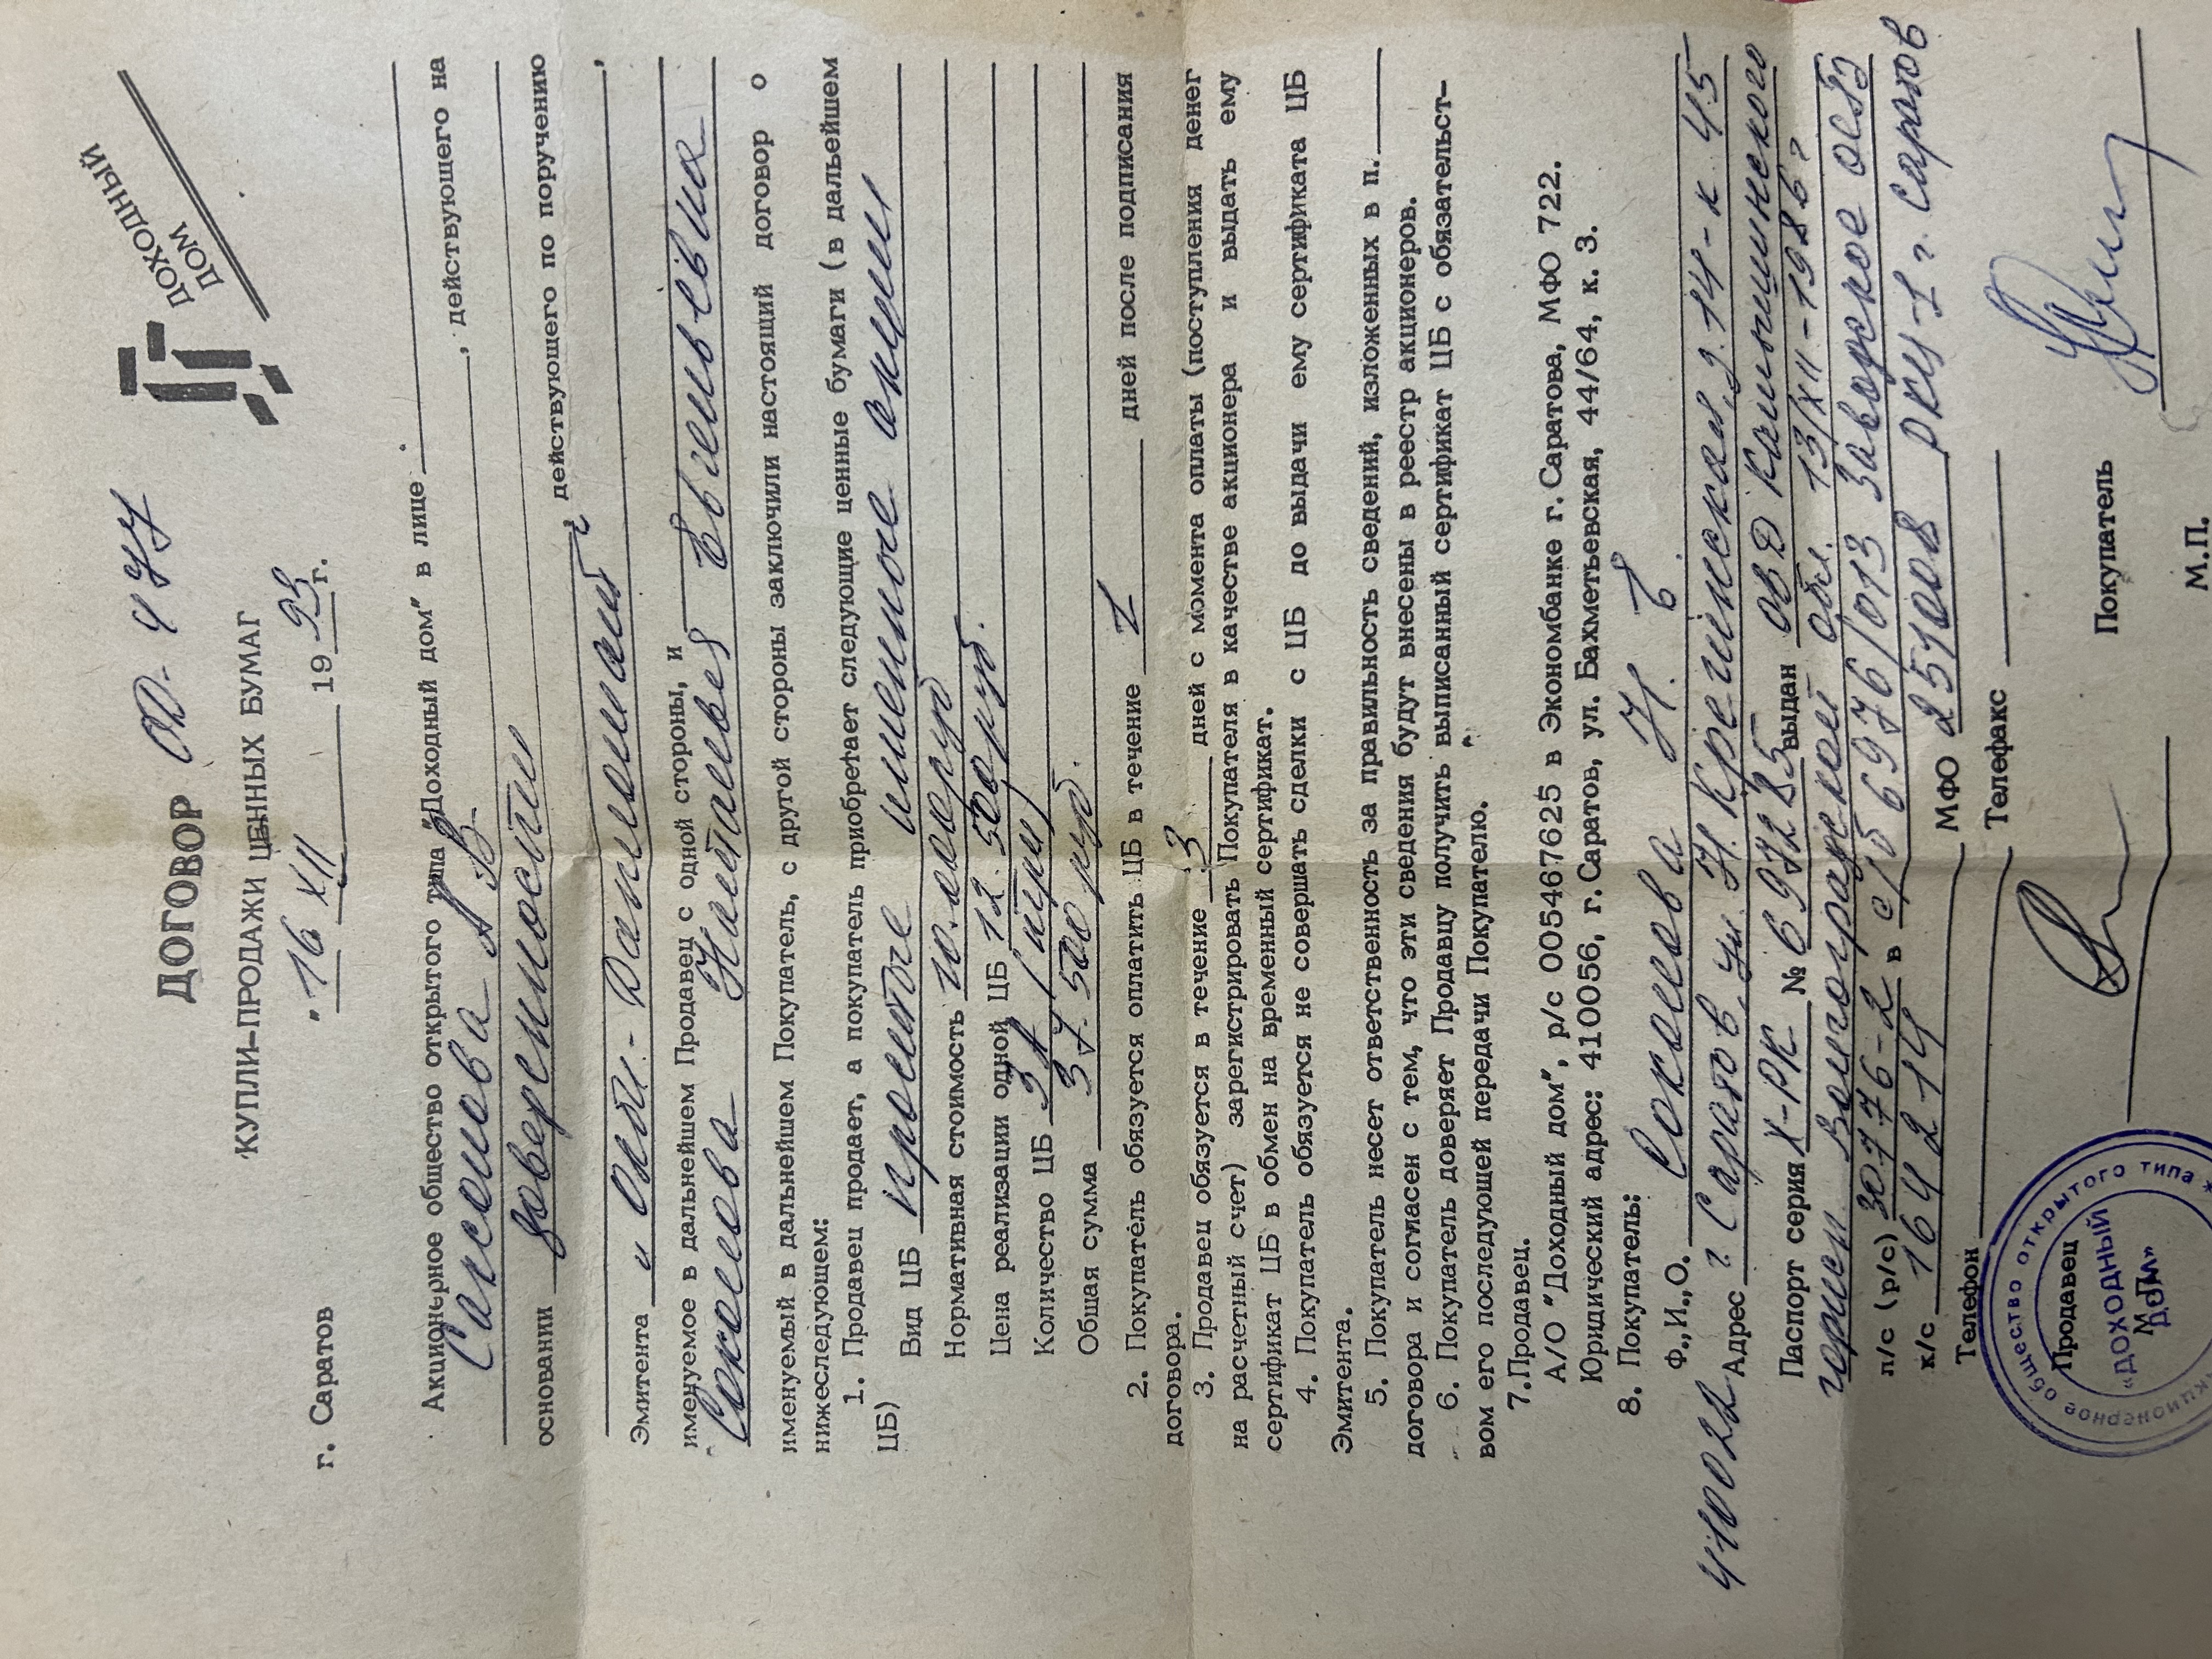 ДОГОВОР ОД-477
ДОХОДНЫЙ
ДОМ
КУПЛИ-ПРОДАЖИ ЦЕННЫХ БУМАГ
г. Саратов "16 XII 1993г.
Акционерное общество открытого типа "Доходный дом" в лице
Саксонова А В , действующего на
основании доверенности
, действующего по поручению
Эмитента "Олби-Дипломат" ,
именуемое в дальнейшем Продавец с одной стороны, и
Соколова Наталья Евгеньевна
именуемый в дальнейшем Покупатель, с другой стороны заключили настоящий договор о
нижеследующем:
1. Продавец продает, а покупатель приобретает следующие ценные бумаги (в дальейшем
ЦБ)
Вид ЦБ простые именные акции
Нормативная стоимость 10.000руб
Цена реализации одной ЦБ 12.500руб.
Количество ЦБ 3А (три)
Общая сумма 37.500 руб.
2. Покупатель обязуется оплатить ЦБ в течение 1 дней после подписания
договора.
3. Продавец обязуется в течение 3 дней с момента оплаты (поступления денег
на расчетный счет) зарегистрировать Покупателя в качестве акционера и выдать ему
сертификат ЦБ в обмен на временный сертификат.
4. Покупатель обязуется не совершать сделки с ЦБ до выдачи ему сертификата ЦБ
Эмитента.
5. Покупатель несет ответственность за правильность сведений, изложенных в п.
договора и согласен с тем, что эти сведения будут внесены в реестр акционеров.
6. Покупатель доверяет Продавцу получить выписанный сертификат ЦБ с обязательст-
вом его последующей передачи Покупателю.
7.Продавец.
А/О "Доходный дом", р/с 005467625 в Экономбанке г. Саратова, МФО 722.
Юридический адрес: 410056, г. Саратов, ул. Бахметьевская, 44/64, к. 3.
8. Покупатель:
Ф.,И.,О. Соколова Н. Е.
410022 Адрес г. Саратов, ул. Н. Крекинская, д.14-к 45
Паспорт серия X-РК № 697285 выдан ОВД Камышинского
горисп. Волгоградской обл. 13/XII-1986г
л/с (р/с) 30776-2 в с/б 6976/013 Заводское ОСБ
к/с 164214 МФО 251008 РКЦ-1 г. Саратов
Телефон Телефакс
акционерное общество открытого типа *
Продавец
«ДОХОДНЫЙ
ДОМ»
М.П.
Покупатель
М.П.